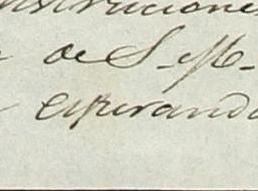 instrucciones
de S. M.
esperando